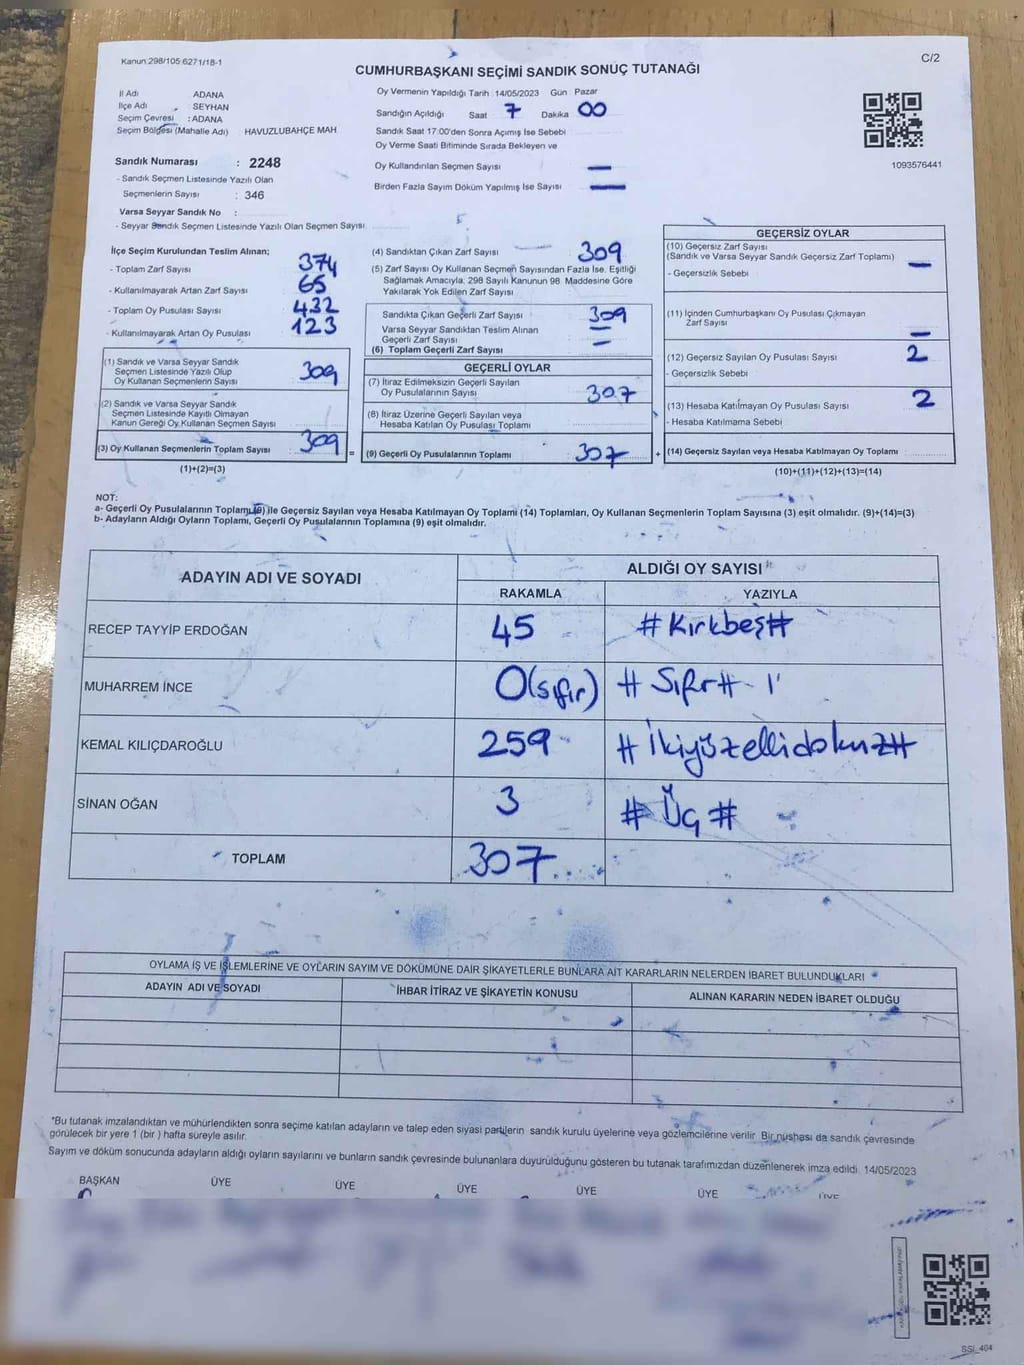 Kanun:298/105 6271/18-1
C/2
CUMHURBAŞKANI SEÇİMİ SANDIK SONUÇ TUTANAĞI
İl Adı ADANA
İlçe Adı SEYHAN
Seçim Çevresi : ADANA
Seçim Bölgesi (Mahalle Adı) HAVUZLUBAHÇE MAH
Oy Vermenin Yapıldığı Tarih :14/05/2023 Gün Pazar
Sandığın Açıldığı Saat 7 Dakika 00
Sandık Saat 17:00'den Sonra Açımış İse Sebebi
Oy Verme Saati Bitiminde Sırada Bekleyen ve
Oy Kullandırılan Seçmen Sayısı —
Birden Fazla Sayım Döküm Yapılmış İse Sayısı —
1093576441
Sandık Numarası : 2248
- Sandık Seçmen Listesinde Yazılı Olan
Seçmenlerin Sayısı : 346
Varsa Seyyar Sandık No :
- Seyyar Sandık Seçmen Listesinde Yazılı Olan Seçmen Sayısı
İlçe Seçim Kurulundan Teslim Alınan;
- Toplam Zarf Sayısı 374
- Kullanılmayarak Artan Zarf Sayısı 65
- Toplam Oy Pusulası Sayısı 432
- Kullanılmayarak Artan Oy Pusulası 123
(1) Sandık ve Varsa Seyyar Sandık
Seçmen Listesinde Yazılı Olup
Oy Kullanan Seçmenlerin Sayısı 309
(2) Sandık ve Varsa Seyyar Sandık
Seçmen Listesinde Kayıtlı Olmayan
Kanun Gereği Oy Kullanan Seçmen Sayısı
(3) Oy Kullanan Seçmenlerin Toplam Sayısı 309 =
(1)+(2)=(3)
(4) Sandıktan Çıkan Zarf Sayısı 309
(5) Zarf Sayısı Oy Kullanan Seçmen Sayısından Fazla İse, Eşitliği
Sağlamak Amacıyla, 298 Sayılı Kanunun 98. Maddesine Göre
Yakılarak Yok Edilen Zarf Sayısı
Sandıkta Çıkan Geçerli Zarf Sayısı 309
Varsa Seyyar Sandıktan Teslim Alınan
Geçerli Zarf Sayısı —
(6) Toplam Geçerli Zarf Sayısı —
GEÇERLİ OYLAR
(7) İtiraz Edilmeksizin Geçerli Sayılan
Oy Pusulalarının Sayısı 307
(8) İtiraz Üzerine Geçerli Sayılan veya
Hesaba Katılan Oy Pusulası Toplamı
(9) Geçerli Oy Pusulalarının Toplamı 307 +
GEÇERSİZ OYLAR
(10) Geçersiz Zarf Sayısı
(Sandık ve Varsa Seyyar Sandık Geçersiz Zarf Toplamı) —
- Geçersizlik Sebebi
(11) İçinden Cumhurbaşkanı Oy Pusulası Çıkmayan
Zarf Sayısı —
(12) Geçersiz Sayılan Oy Pusulası Sayısı 2
- Geçersizlik Sebebi
(13) Hesaba Katılmayan Oy Pusulası Sayısı 2
- Hesaba Katılmama Sebebi
(14) Geçersiz Sayılan veya Hesaba Katılmayan Oy Toplamı
(10)+(11)+(12)+(13)=(14)
NOT:
a- Geçerli Oy Pusulalarının Toplamı (9) ile Geçersiz Sayılan veya Hesaba Katılmayan Oy Toplamı (14) Toplamları, Oy Kullanan Seçmenlerin Toplam Sayısına (3) eşit olmalıdır. (9)+(14)=(3)
b- Adayların Aldığı Oyların Toplamı, Geçerli Oy Pusulalarının Toplamına (9) eşit olmalıdır.
ADAYIN ADI VE SOYADI ALDIĞI OY SAYISI
RAKAMLA YAZIYLA
RECEP TAYYİP ERDOĞAN 45 #Kırkbeş#
MUHARREM İNCE 0(sıfır) #Sıfır#
KEMAL KILIÇDAROĞLU 259 #İkiyüzellidokuz#
SİNAN OĞAN 3 #Üç#
TOPLAM 307
OYLAMA İŞ VE İŞLEMLERİNE VE OYLARIN SAYIM VE DÖKÜMÜNE DAİR ŞİKAYETLERLE BUNLARA AİT KARARLARIN NELERDEN İBARET BULUNDUKLARI
ADAYIN ADI VE SOYADI İHBAR İTİRAZ VE ŞİKAYETİN KONUSU ALINAN KARARIN NEDEN İBARET OLDUĞU
*Bu tutanak imzalandıktan ve mühürlendikten sonra seçime katılan adayların ve talep eden siyasi partilerin sandık kurulu üyelerine veya gözlemcilerine verilir. Bir nüshası da sandık çevresinde
görülecek bir yere 1 (bir) hafta süreyle asılır.
Sayım ve döküm sonucunda adayların aldığı oyların sayılarını ve bunların sandık çevresinde bulunanlara duyurulduğunu gösteren bu tutanak tarafımızdan düzenlenerek imza edildi. 14/05/2023
BAŞKAN ÜYE ÜYE ÜYE ÜYE ÜYE ÜYE
SSI_404